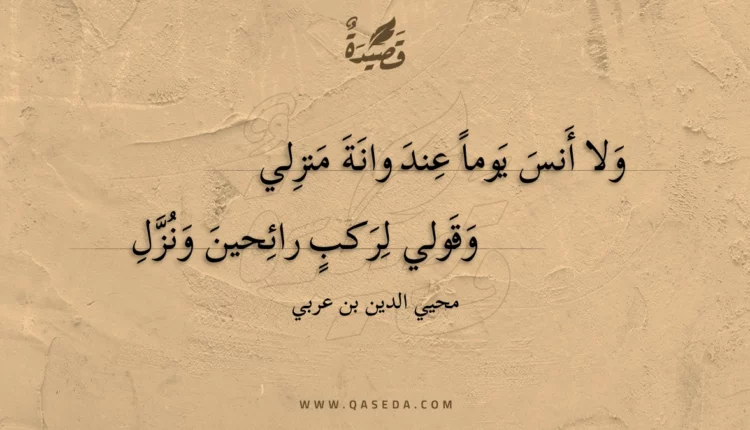 قَصِيدَةٌ
وَلا أَنسَ يَوماً عِندَ وانَةَ مَنزِلي
وَقَولي لِرَكبٍ رائِحينَ وَنُزَّلِ
محيي الدين بن عربي
WWW.QASEDA.COM